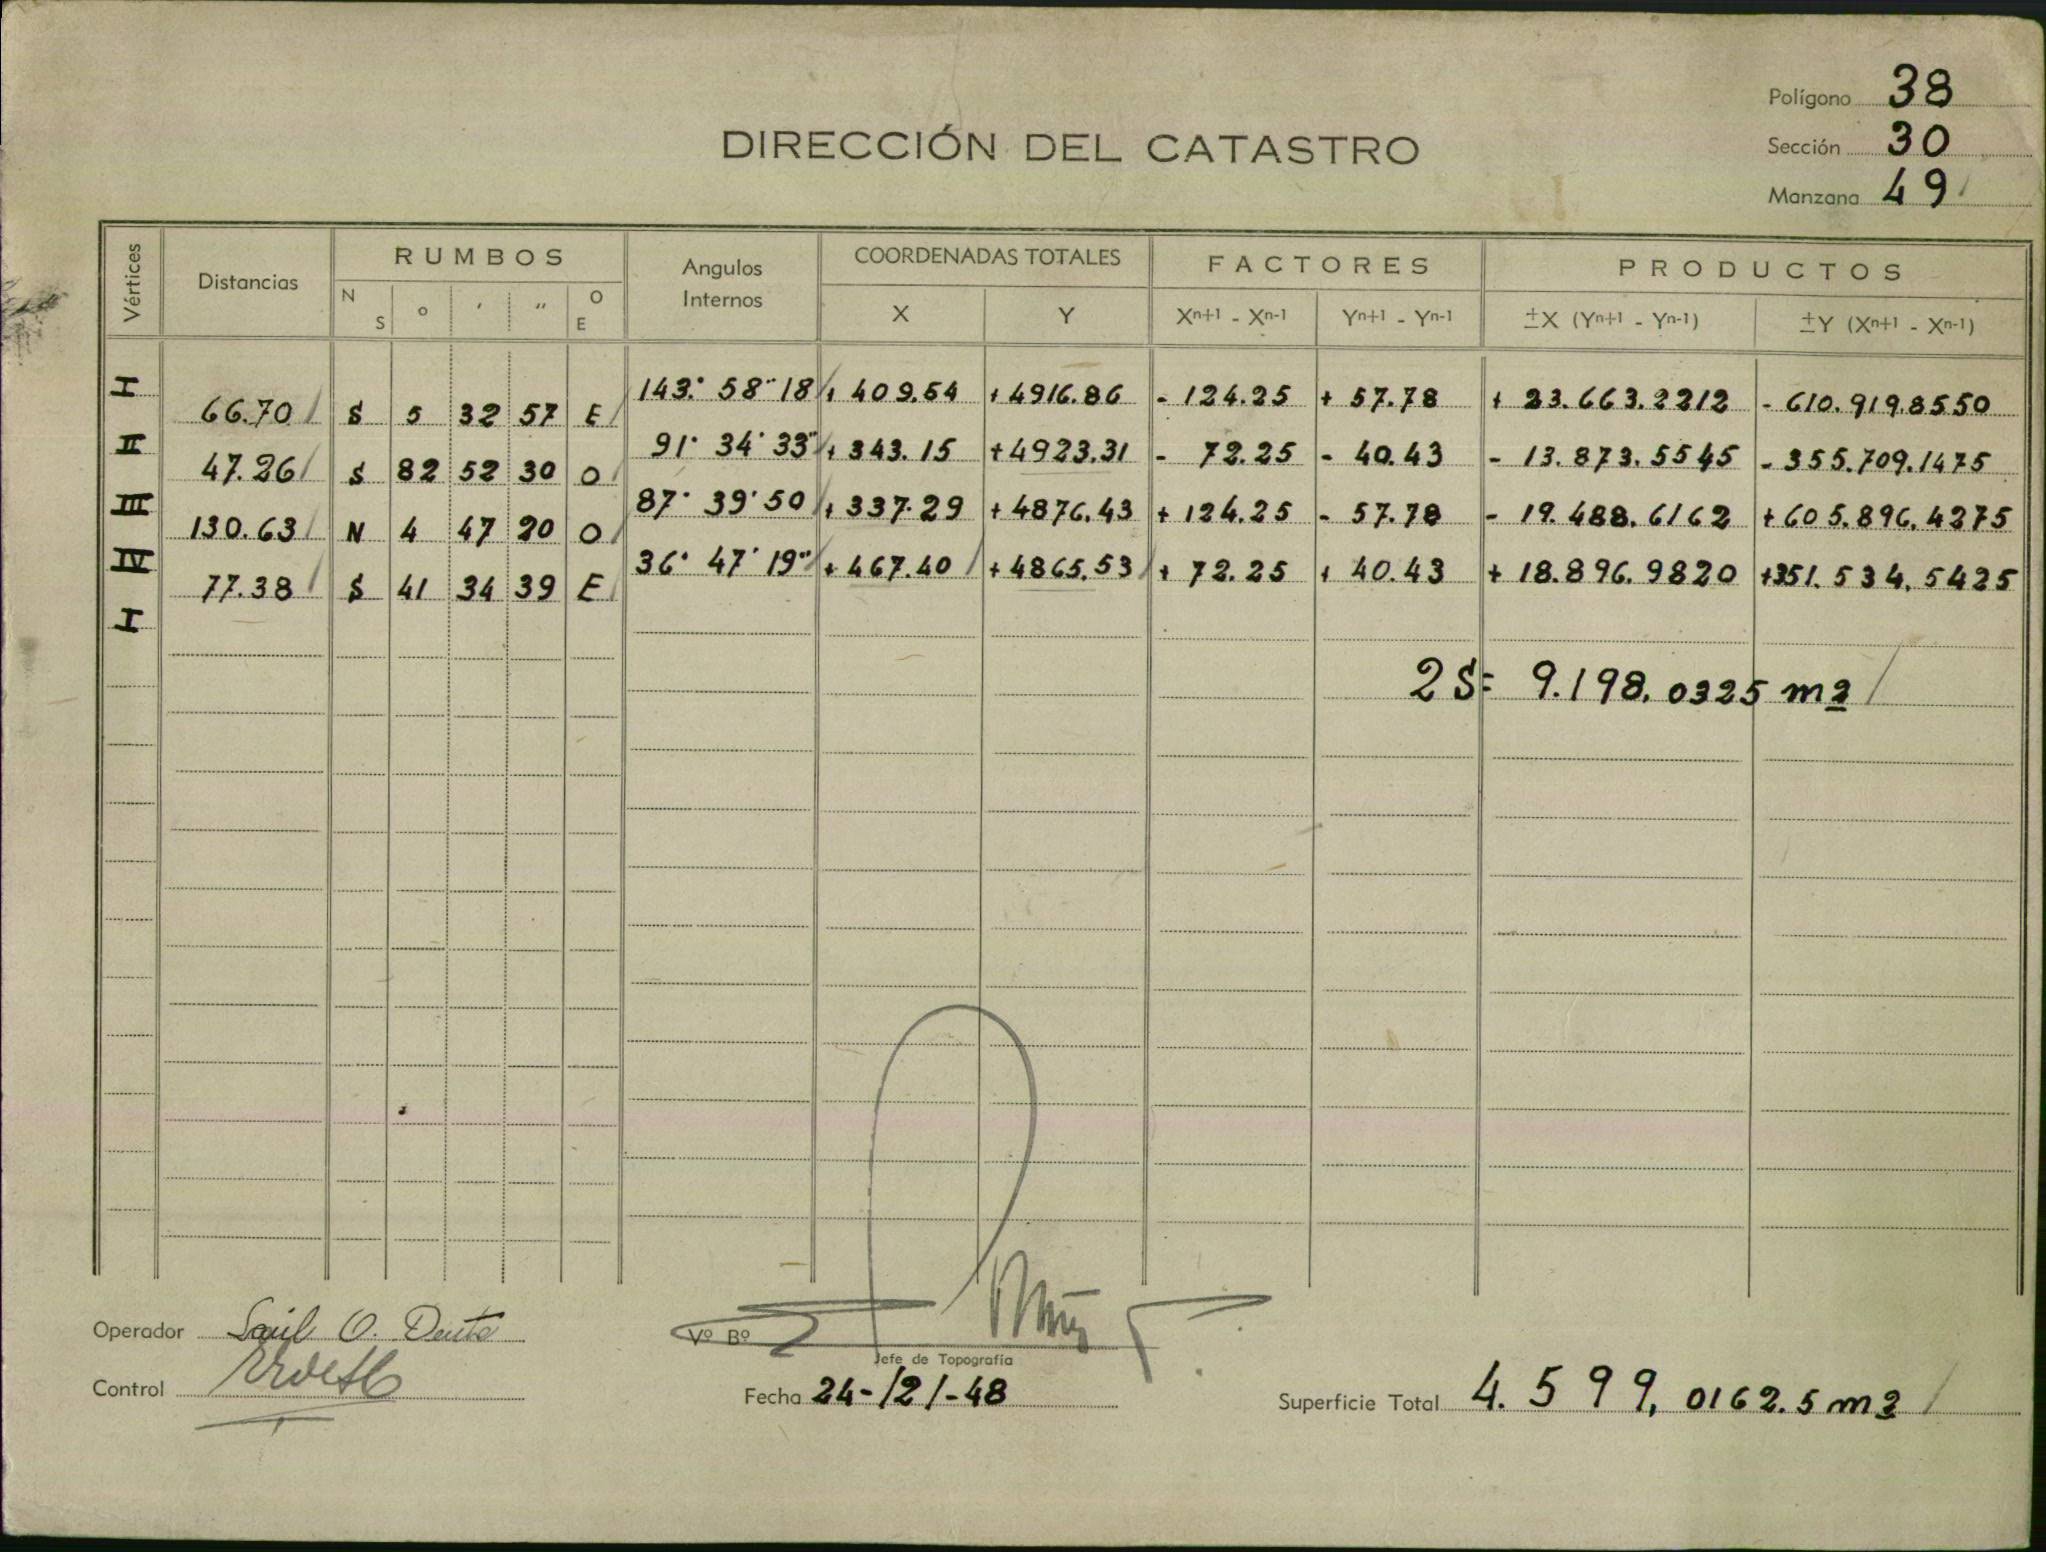 Polígono 38
DIRECCIÓN DEL CATASTRO
Sección 30
Manzana 49
Vértices Distancias RUMBOS Angulos Internos COORDENADAS TOTALES FACTORES PRODUCTOS
N S ° ′ ″ O E X Y Xn+1 - Xn-1 Yn+1 - Yn-1 ±X (Yn+1 - Yn-1) ±Y (Xn+1 - Xn-1)
I 143° 58" 18 + 409.54 + 4916.86 - 124.25 + 57.78 + 23.663.2212 - 610.919.8550
66.70 S 5 32 57 E
II 91° 34' 33" + 343.15 + 4923.31 - 72.25 - 40.43 - 13.873.5545 - 355.709.1475
47.26 S 82 52 30 O
III 87° 39' 50 + 337.29 + 4876.43 + 124.25 - 57.78 - 19.488.6162 + 605.896.4275
130.63 N 4 47 20 O
IV 36° 47' 19" + 467.40 + 4865.53 + 72.25 + 40.43 + 18.896.9820 +351.534.5425
77.38 S 41 34 39 E
I
2S= 9.198.0325 m2
Operador Saúl O.
Vº Bº
Jefe de Topografía
Control
Fecha 24-/2/-48
Superficie Total 4.599,0162.5 m2